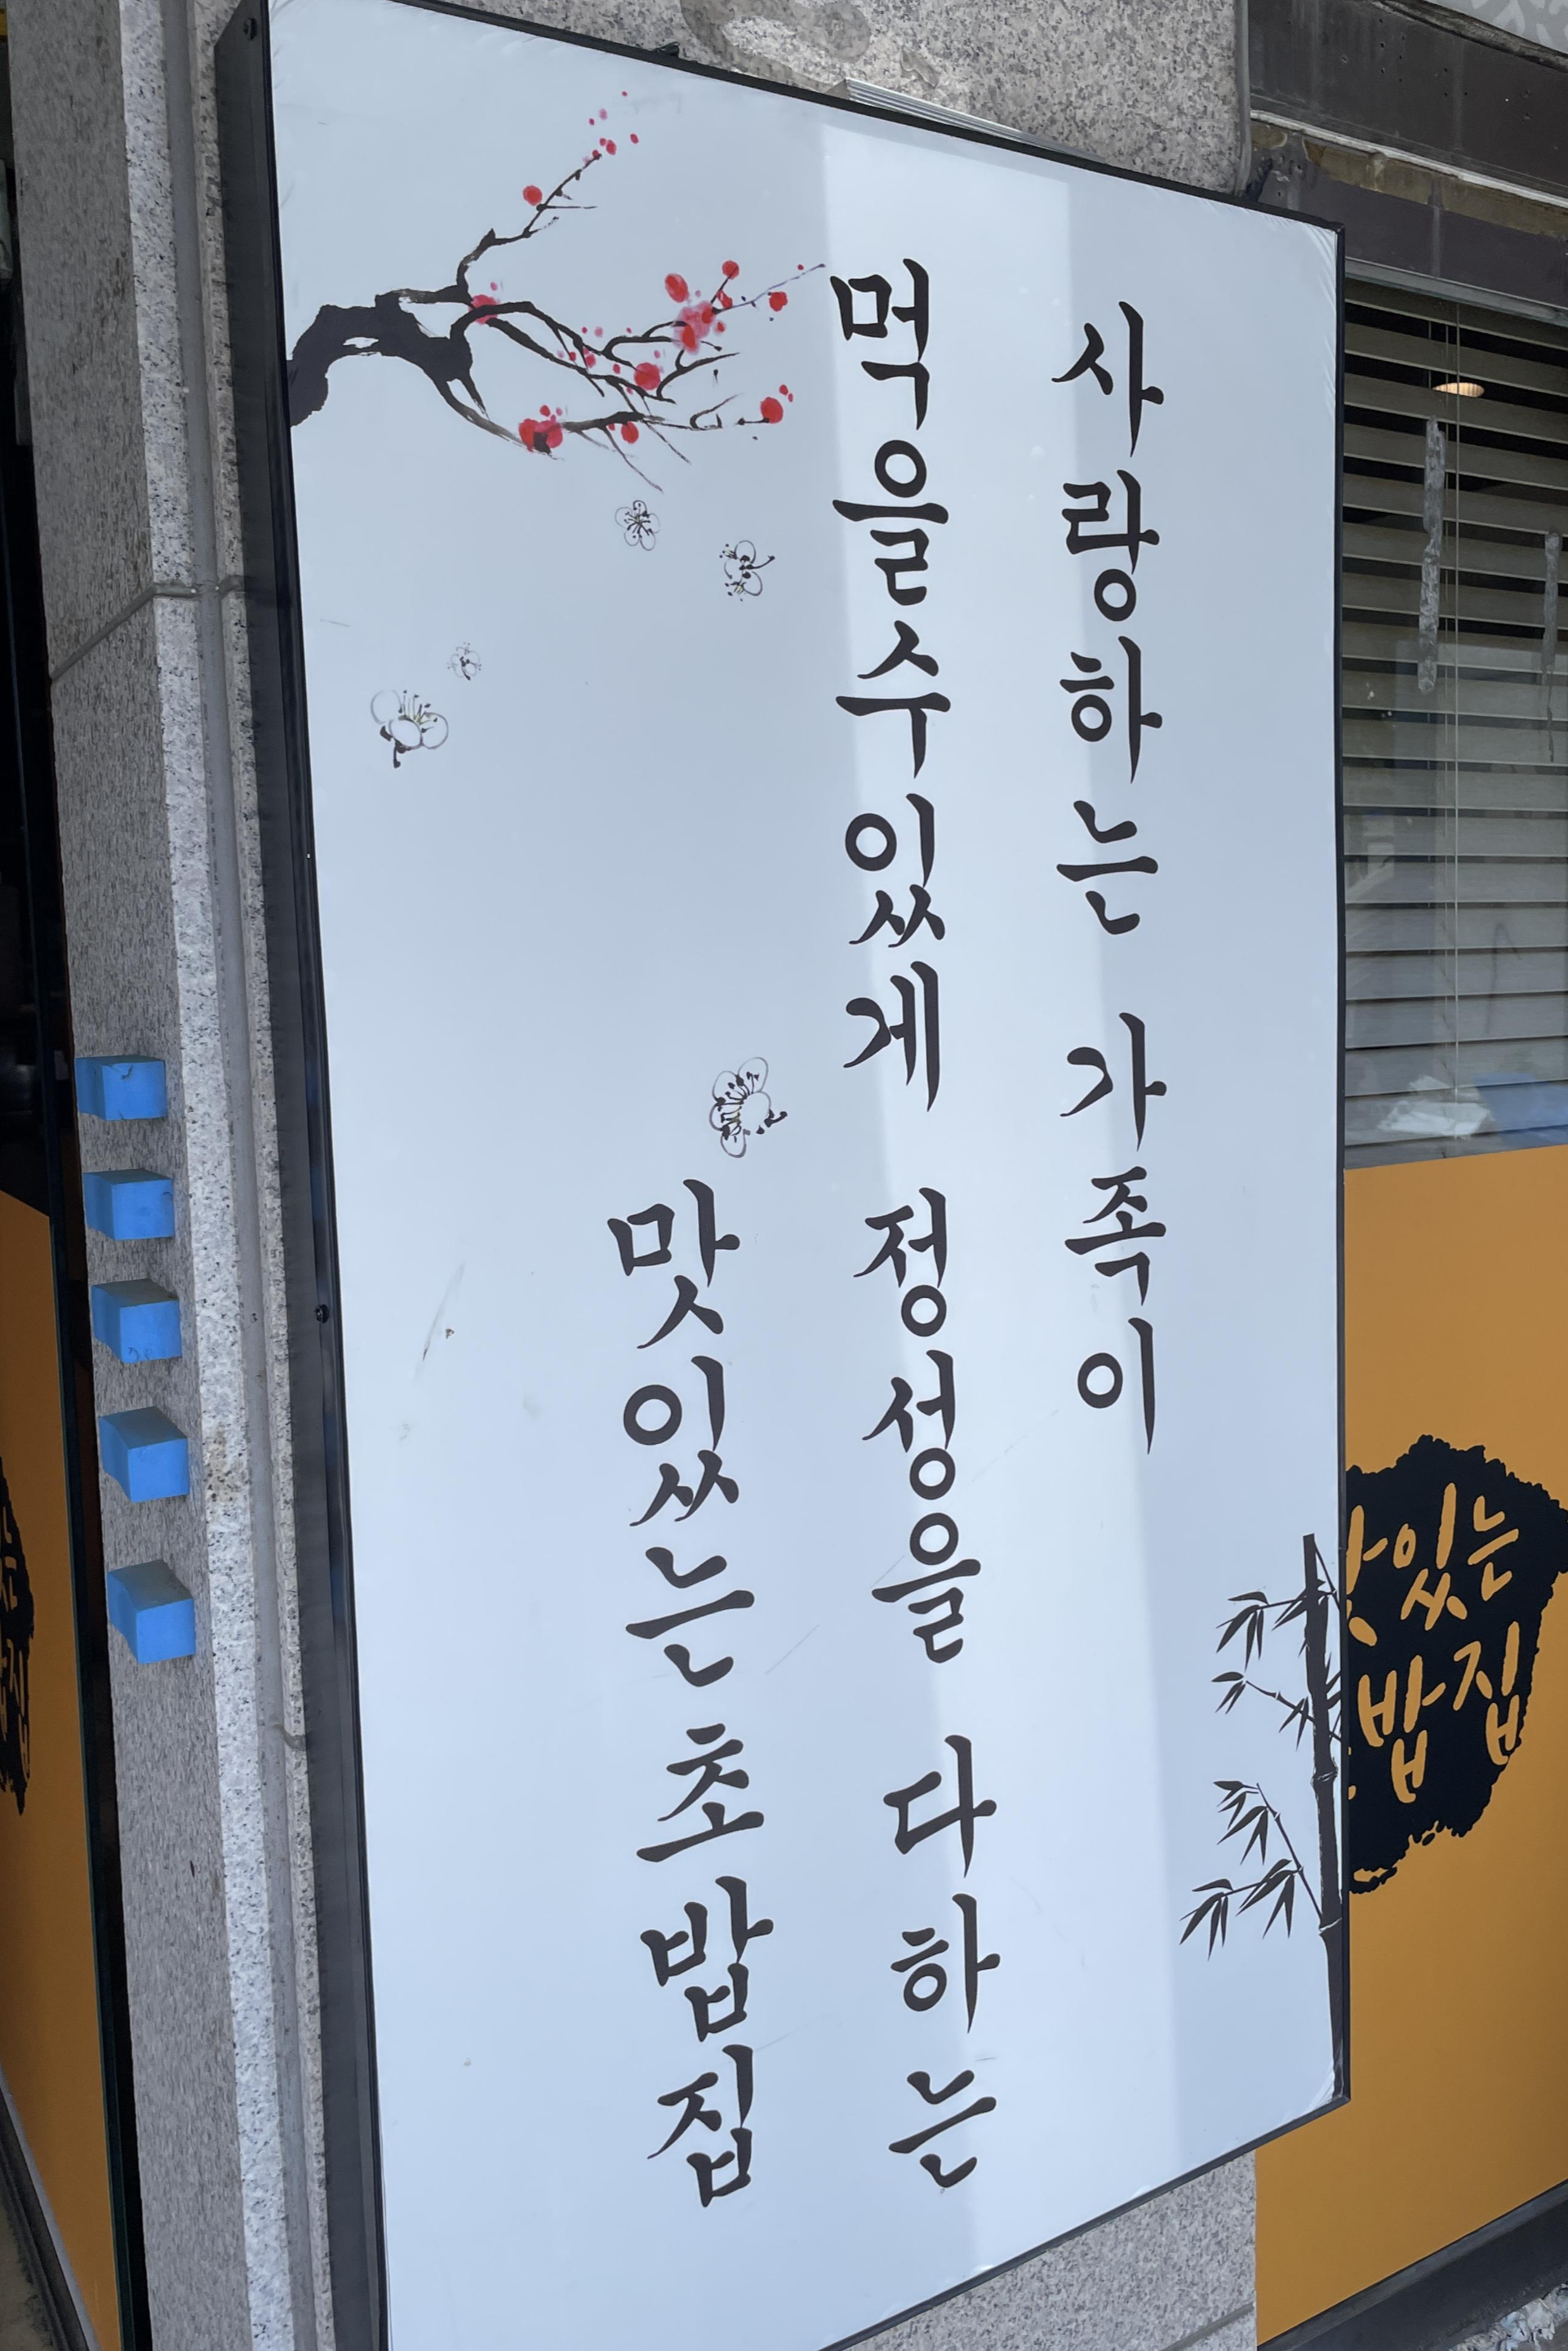 사랑하는 가족이
먹을수있게 정성을 다하는
맛있는초밥집
있는
밥집